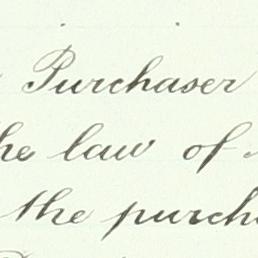 Purchaser
the law of
the purch